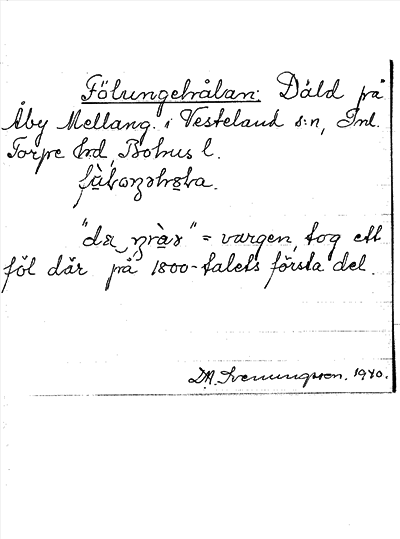 Fölungehålan: Dåld på
Åby Mellang. i Vesteland s:n, Inl.
Torpe hd, Bohus l.

"da gràr" = vargen, tog ett
föl där på 1800-talets första del.
D.A. Svenungsson. 1940.